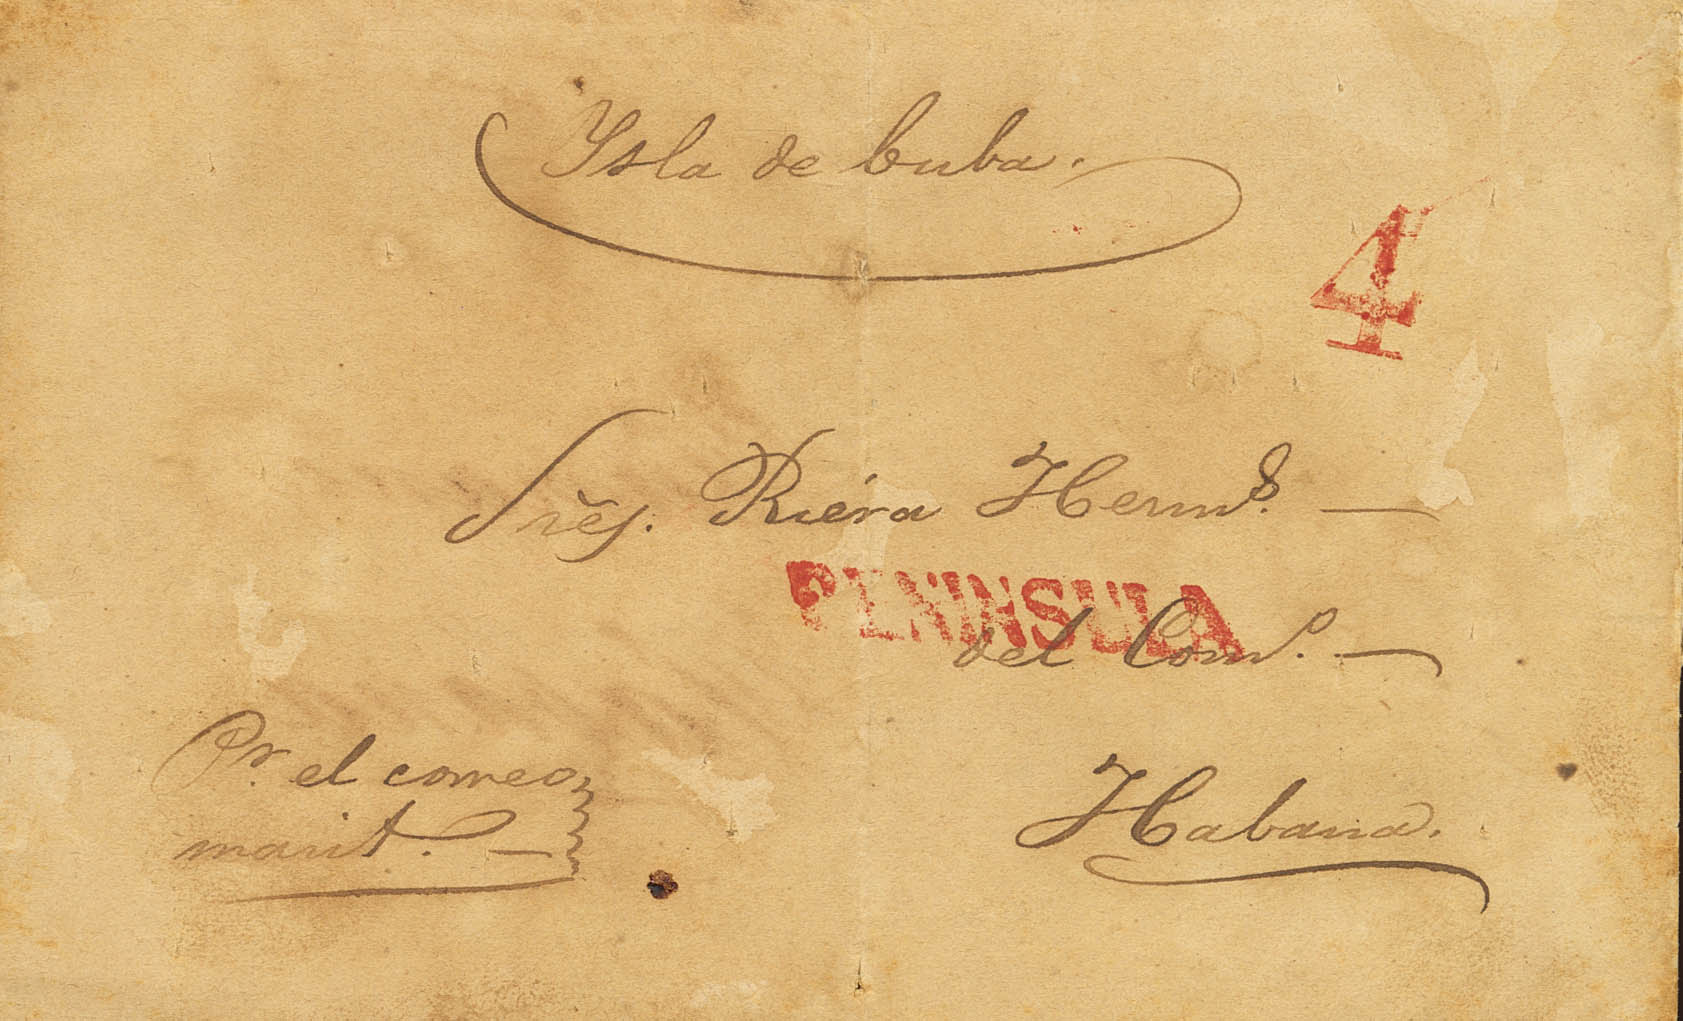 Ysla de Cuba.
4
Sres. Riéra Herms.
PENINSULA
del Como.
Pr. el correo
marit.
Habana.